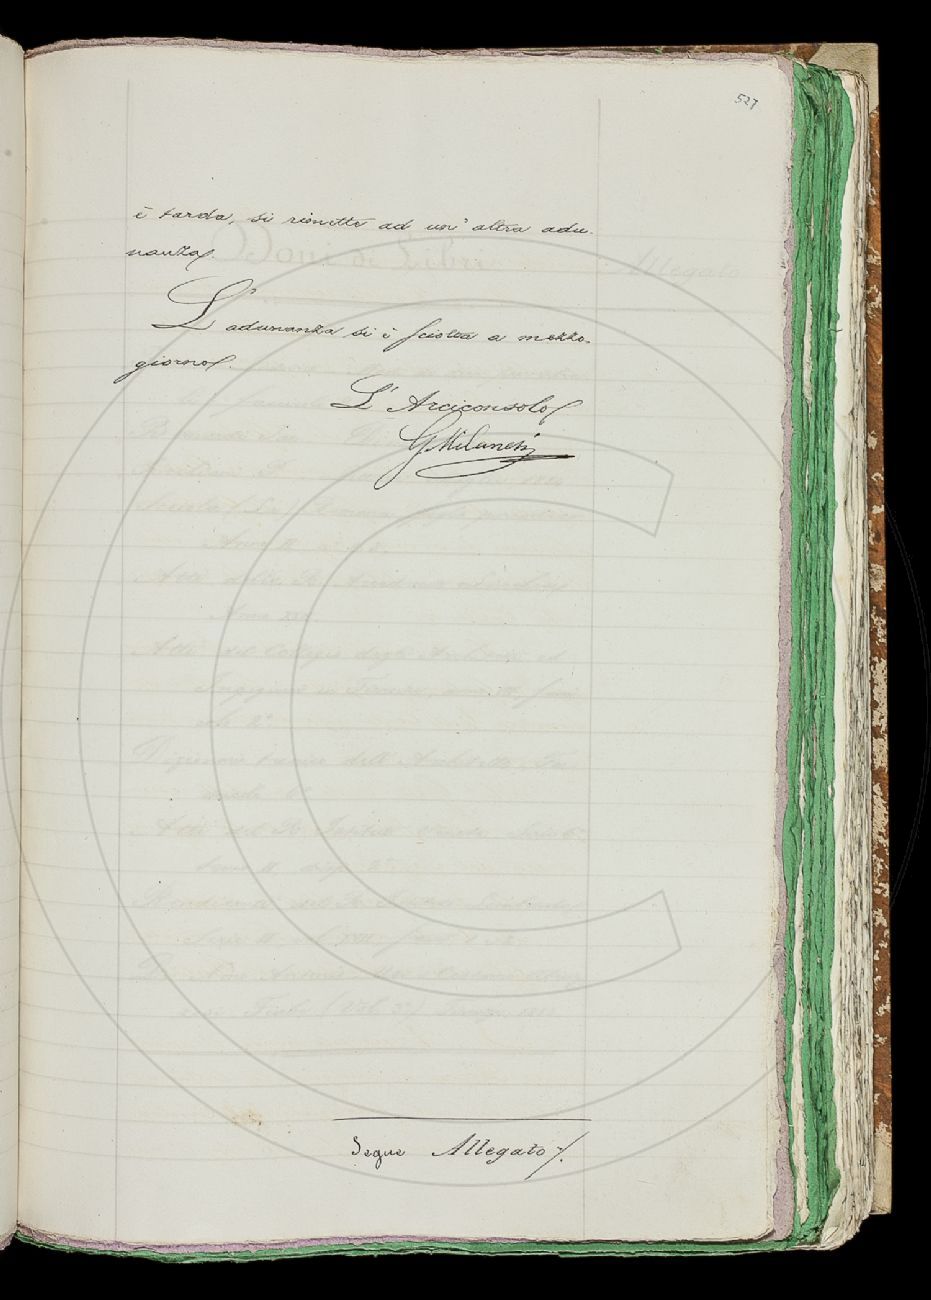 527
è tarda, si rimette ad un' altra adu-
nanza.
L' adunanza si è sciolta a mezzo-
giorno.
L' Arciconsolo
G. Milanesi
Segue Allegato/.